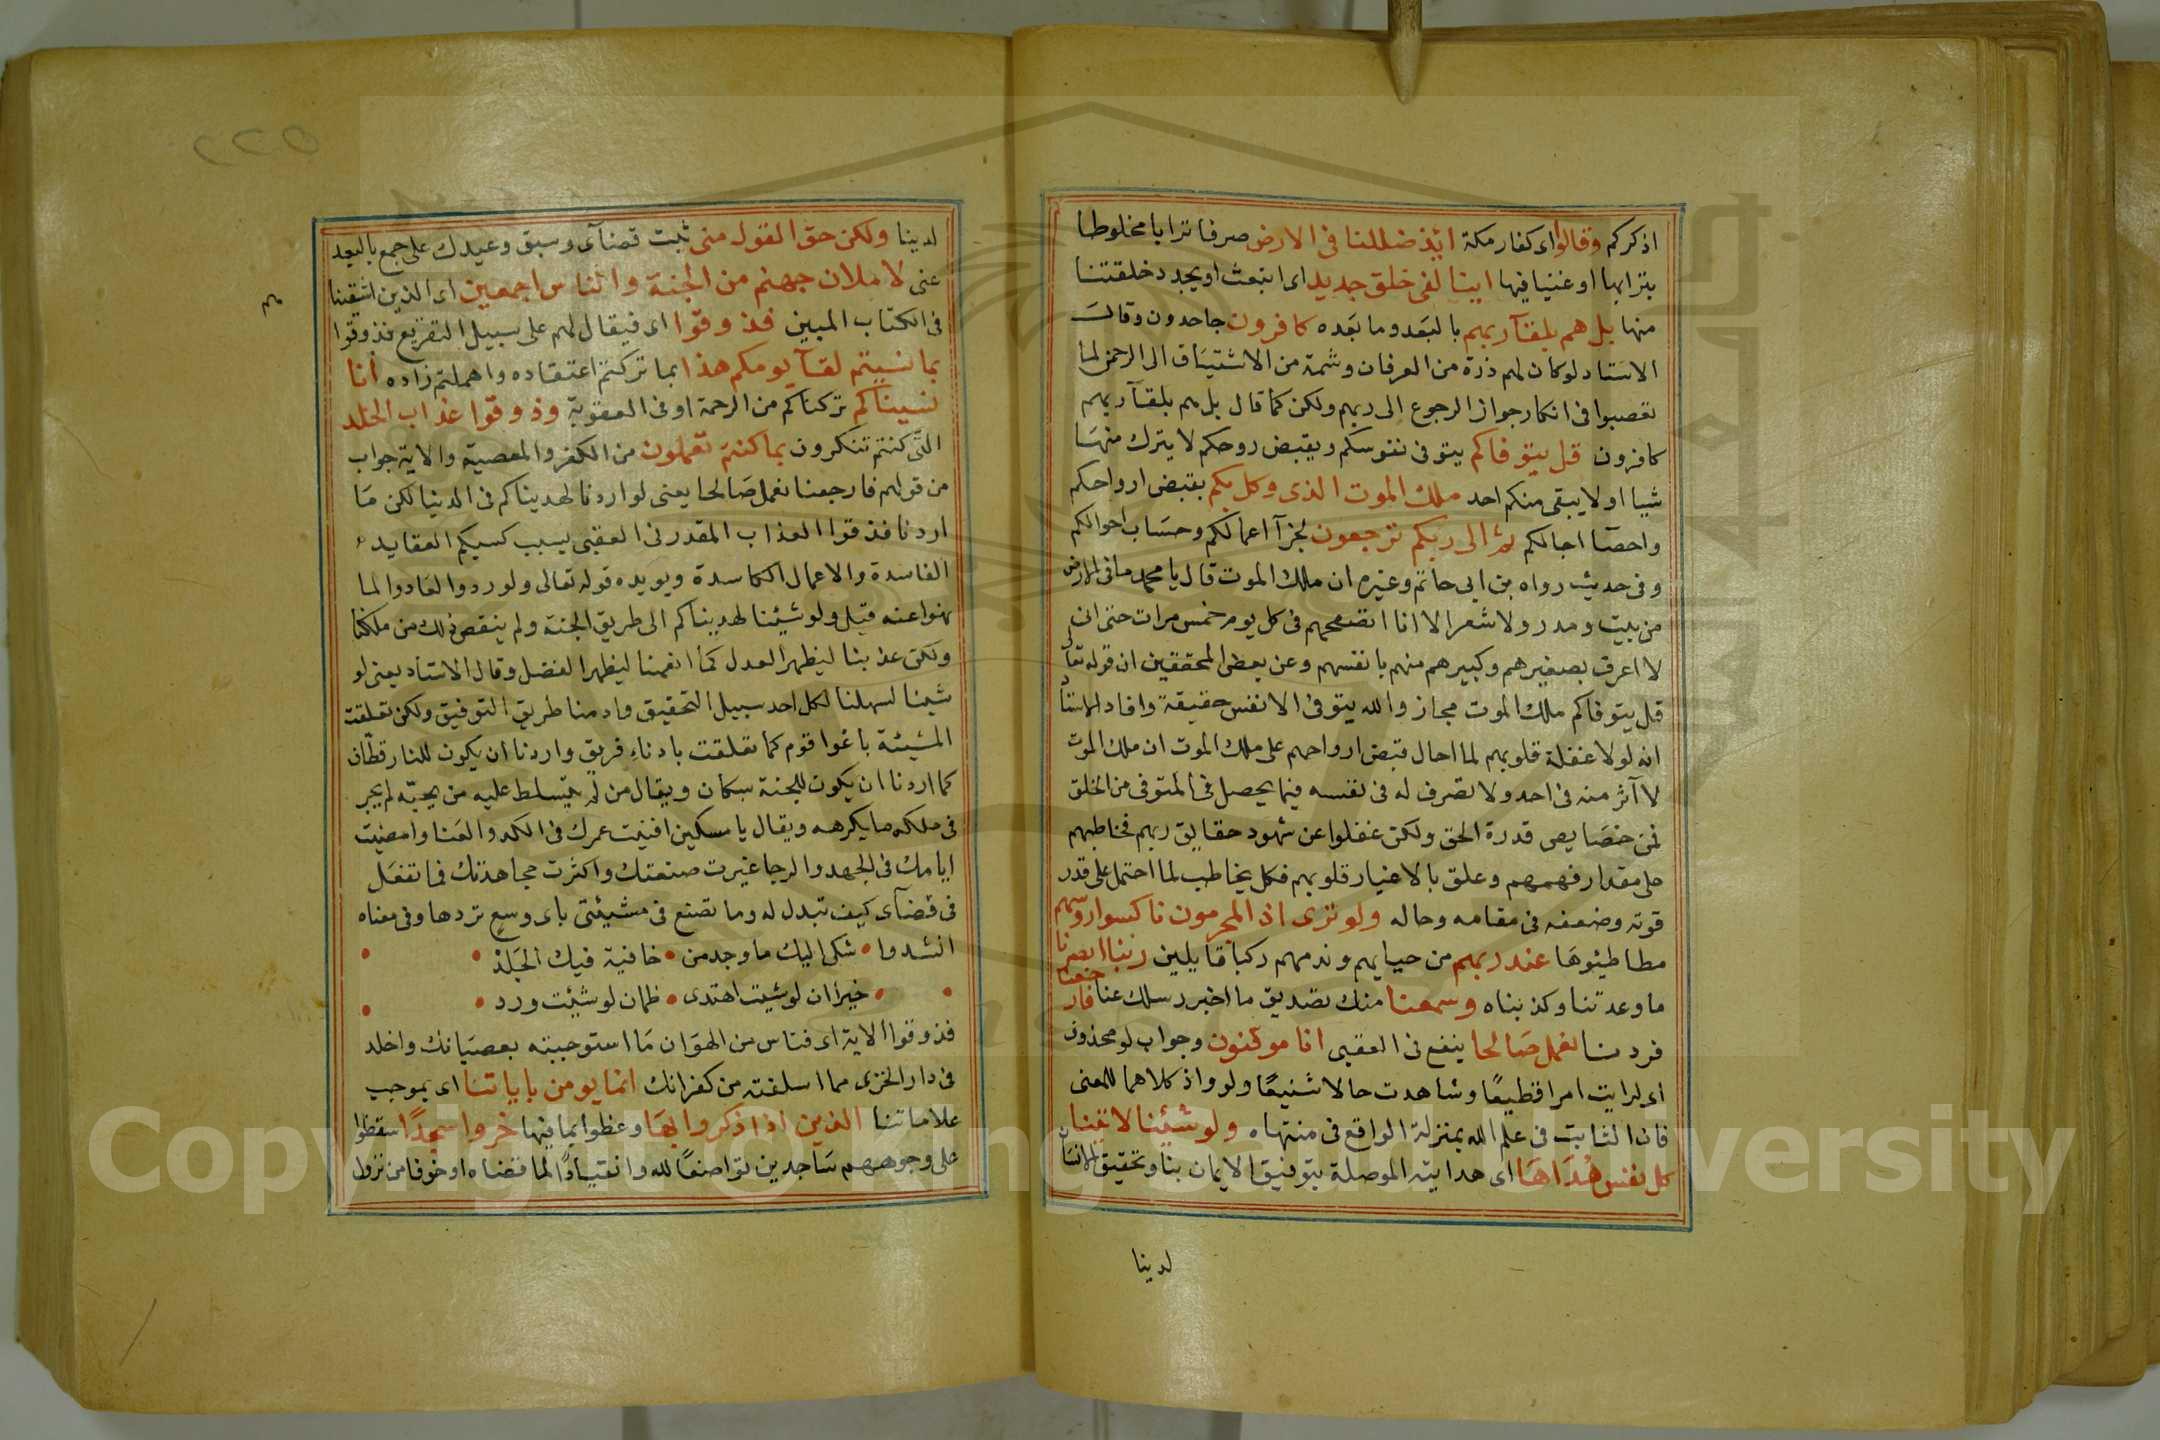 اذكركم وقالوا اى كفار مكة ائذ ضللنا فى الارض صرفا ترابا مخلوطا
بترابها او غنيا فيها اينا لفى خلق جديد اى انبعث او يجدد خلقتنا
منها بل هم بلقآ ربهم بالبعد وما بعده كافرون جاحدون وقال
الاستاد لو كان لهم ذرة من العرفان وشمة من الاشتياق الى الرحمن لما
تعصبوا فى انكار جواز الرجوع الى ربهم ولكن كما قال بل هم بلقآ ربهم
كافرون قل يتوفاكم يتوفى نفوسكم ويقبض روحكم لا يترك منها
شيا او لا يبقى منكم احد ملك الموت الذى وكل بكم بقبض ارواحكم
واحصآ اجالكم ثم الى ربكم ترجعون لجزآ اعمالكم وحساب احوالكم
وفى حديث رواه بن ابى حاتم وغيره ان ملك الموت قال يا محمد ما فى الارض
من بيت ومدر ولا شعر الا انا اتصفحهم فى كل يوم خمس مرات حتى انى
لا اعرف بصغيرهم وكبيرهم منهم بانفسهم وعن بعض المحققين ان قوله تعالى
قل يتوفاكم ملك الموت مجاز والله يتوفى الانفس حقيقة وافاد الاستاد
انه لولا غفلة قلوبهم لما احال قبض ارواحهم على ملك الموت ان ملك الموت
لا آثر منه فى احد ولا تصرف له فى نفسه فيما يحصل فى المتوفى من الخلق
فمن خصايص قدرة الحق ولكن غفلوا عن شهود حقايق ربهم فخاطبهم
على مقدار فهمهم وعلق بالاغيار قلوبهم فكل يخاطب لما احتمل على قدر
قوته وضعفه فى مقامه وحاله ولو ترى اذ المجرمون ناكسوا روسهم
مطاطيئوها عند ربهم من حيايهم وندمهم ركبا قايلين ربنا ابصرنا
ما وعدتنا وكذبناه وسمعنا منك تصديق ما اخبر رسلك عنا فارجعنا
فردنا نعمل صالحا ينفع فى العقبى انا موقنون وجواب لو محذوف
اى لرايت امرا قطيعًا وشاهدت حالا شنيعًا ولو واذ كلاهما للمعنى
فان الثابت فى علم الله بمنزلة الواقع فى منتهاه ولو شئنا لاتينا
كل نفس هُدَاهَا اى هدايته الموصلة بتوفيق الايمان بنا وتحقيق الانسان
لدينا
لدينا ولكن حق القول منى ثبت قضآى وسبق وعيدك على جمع بالبعد
عنى لاملان جهنم من الجنة والناس اجمعين اى الذين اشقينا
فى الكتاب المبين فذوقوا اى فيقال لهم على سبيل التقريع فذوقوا
بما نسيتم لقآ يومكم هذا بما تركتم اعتقاده واهملتم زاده انا
نسيناكم تركناكم من الرحمة او فى العقوبة وذوقوا عذاب الخلد
التى كنتم تنكرون بما كنتم تعملون من الكفر والمعصية والاية جواب
من قولهم فارجعنا نعمل صالحا يعنى لو اردنا لهديناكم فى الدنيا لكن ما
اردنا فذوقوا العذاب المقدر فى العقبى بسبب كسبكم العقايد
الفاسدة والاعمال الكاسدة ويويده قوله تعالى ولو ردوا لعادوا لما
نهوا عنه قيل ولو شيئنا لهديناكم الى طريق الجنة ولم ينقص ذلك من ملكنا
ولكن عذبنا ليظهر العدل كما انعمنا ليظهر الفضل وقال الاستاد يعنى لو
شينا لسهلنا لكل احد سبيل التحقيق وادمنا طريق التوفيق ولكن تعلقت
المشيئة باغوا قوم كما تعلقت بادناء فريق واردنا ان يكون للنار قطّان
كما اردنا ان يكون للجنة سكان ويقال من لم يتسلط عليه من يحبّه لم يجر
فى ملكه ما يكرهه ويقال يا مسكين افنيت عمرك فى الكد والعنا وامضيت
ايامك فى الجهد والرجا غيرت صنعتك واكثرت مجاهدتك فما تفعل
فى قضآى كيف تبدل له وما تصنع فى مشيئتى باى وسع تردها وفى معناه
انشدوا شكى اليك ما وجد من خافنية فيك الجلد
خيران لو شيت اهتدى ظمان لو شيئت ورد
فذوقوا الاية اى فتاس من الهوان ما استوجبته بعصيانك واخلد
فى دار الخزى مما اسلفته من كفرانك انما يومن باياتنا اى بموجب
علاماتنا الذين اذا ذكروا بها وعظوا بما فيها خروا سجدًا سقطوا
على وجوههم ساجدين تواضعًا لله وانقيادًا لما قضاه او خوفا من نزول
Copyright © King Saud University